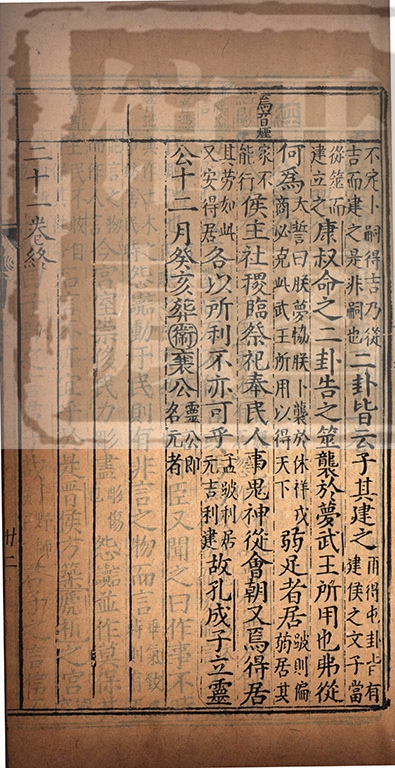 焉音煙
不㝎卜嗣得吉乃從
吉而建之是非嗣也
二卦皆云子其建之
再得屯卦皆有
建侯之文子當
從筮而
建立之
康叔命之二卦告之筮襲於夢武王所用也弗從
何爲
大誓曰朕夢協朕卜襲於休祥戎
商必克此武王所用以得天下
弱足者居
跛則偏
弱居其
家不
能行
侯主社稷臨祭祀奉民人事鬼神從會朝又焉得居
其勞如此
又安得居
各以所利不亦可乎
孟跛利居
元吉利建
故孔成子立靈
公十二月癸亥葬衞襄公
靈公即
名元者
二十一卷終
廿二